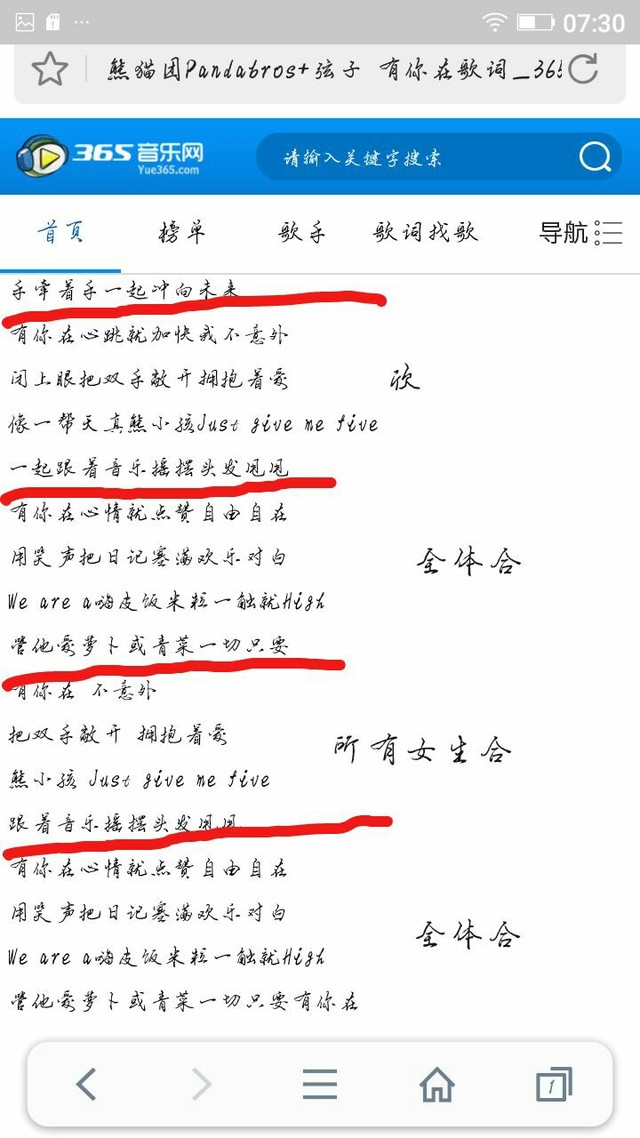 07:30
熊猫团Pandabros+弦子 有你在歌词_365
365音乐网
Yue365.com
请输入关键字搜索
首页 榜单 歌手 歌词找歌 导航
手牵着手一起冲向未来
有你在心跳就加快我不意外
闭上眼把双手敞开拥抱着爱
欣
像一帮天真熊小孩Just give me five
一起跟着音乐摇摆头发甩甩
有你在心情就点赞自由自在
用笑声把日记塞满欢乐对白
全体合
We are a嗨皮饭米粒一触就High
管他爱萝卜或青菜一切只要
有你在 不意外
把双手敞开 拥抱着爱
所有女生合
熊小孩 Just give me five
跟着音乐摇摆头发甩甩
有你在心情就点赞自由自在
用笑声把日记塞满欢乐对白
全体合
We are a嗨皮饭米粒一触就High
管他爱萝卜或青菜一切只要有你在
1